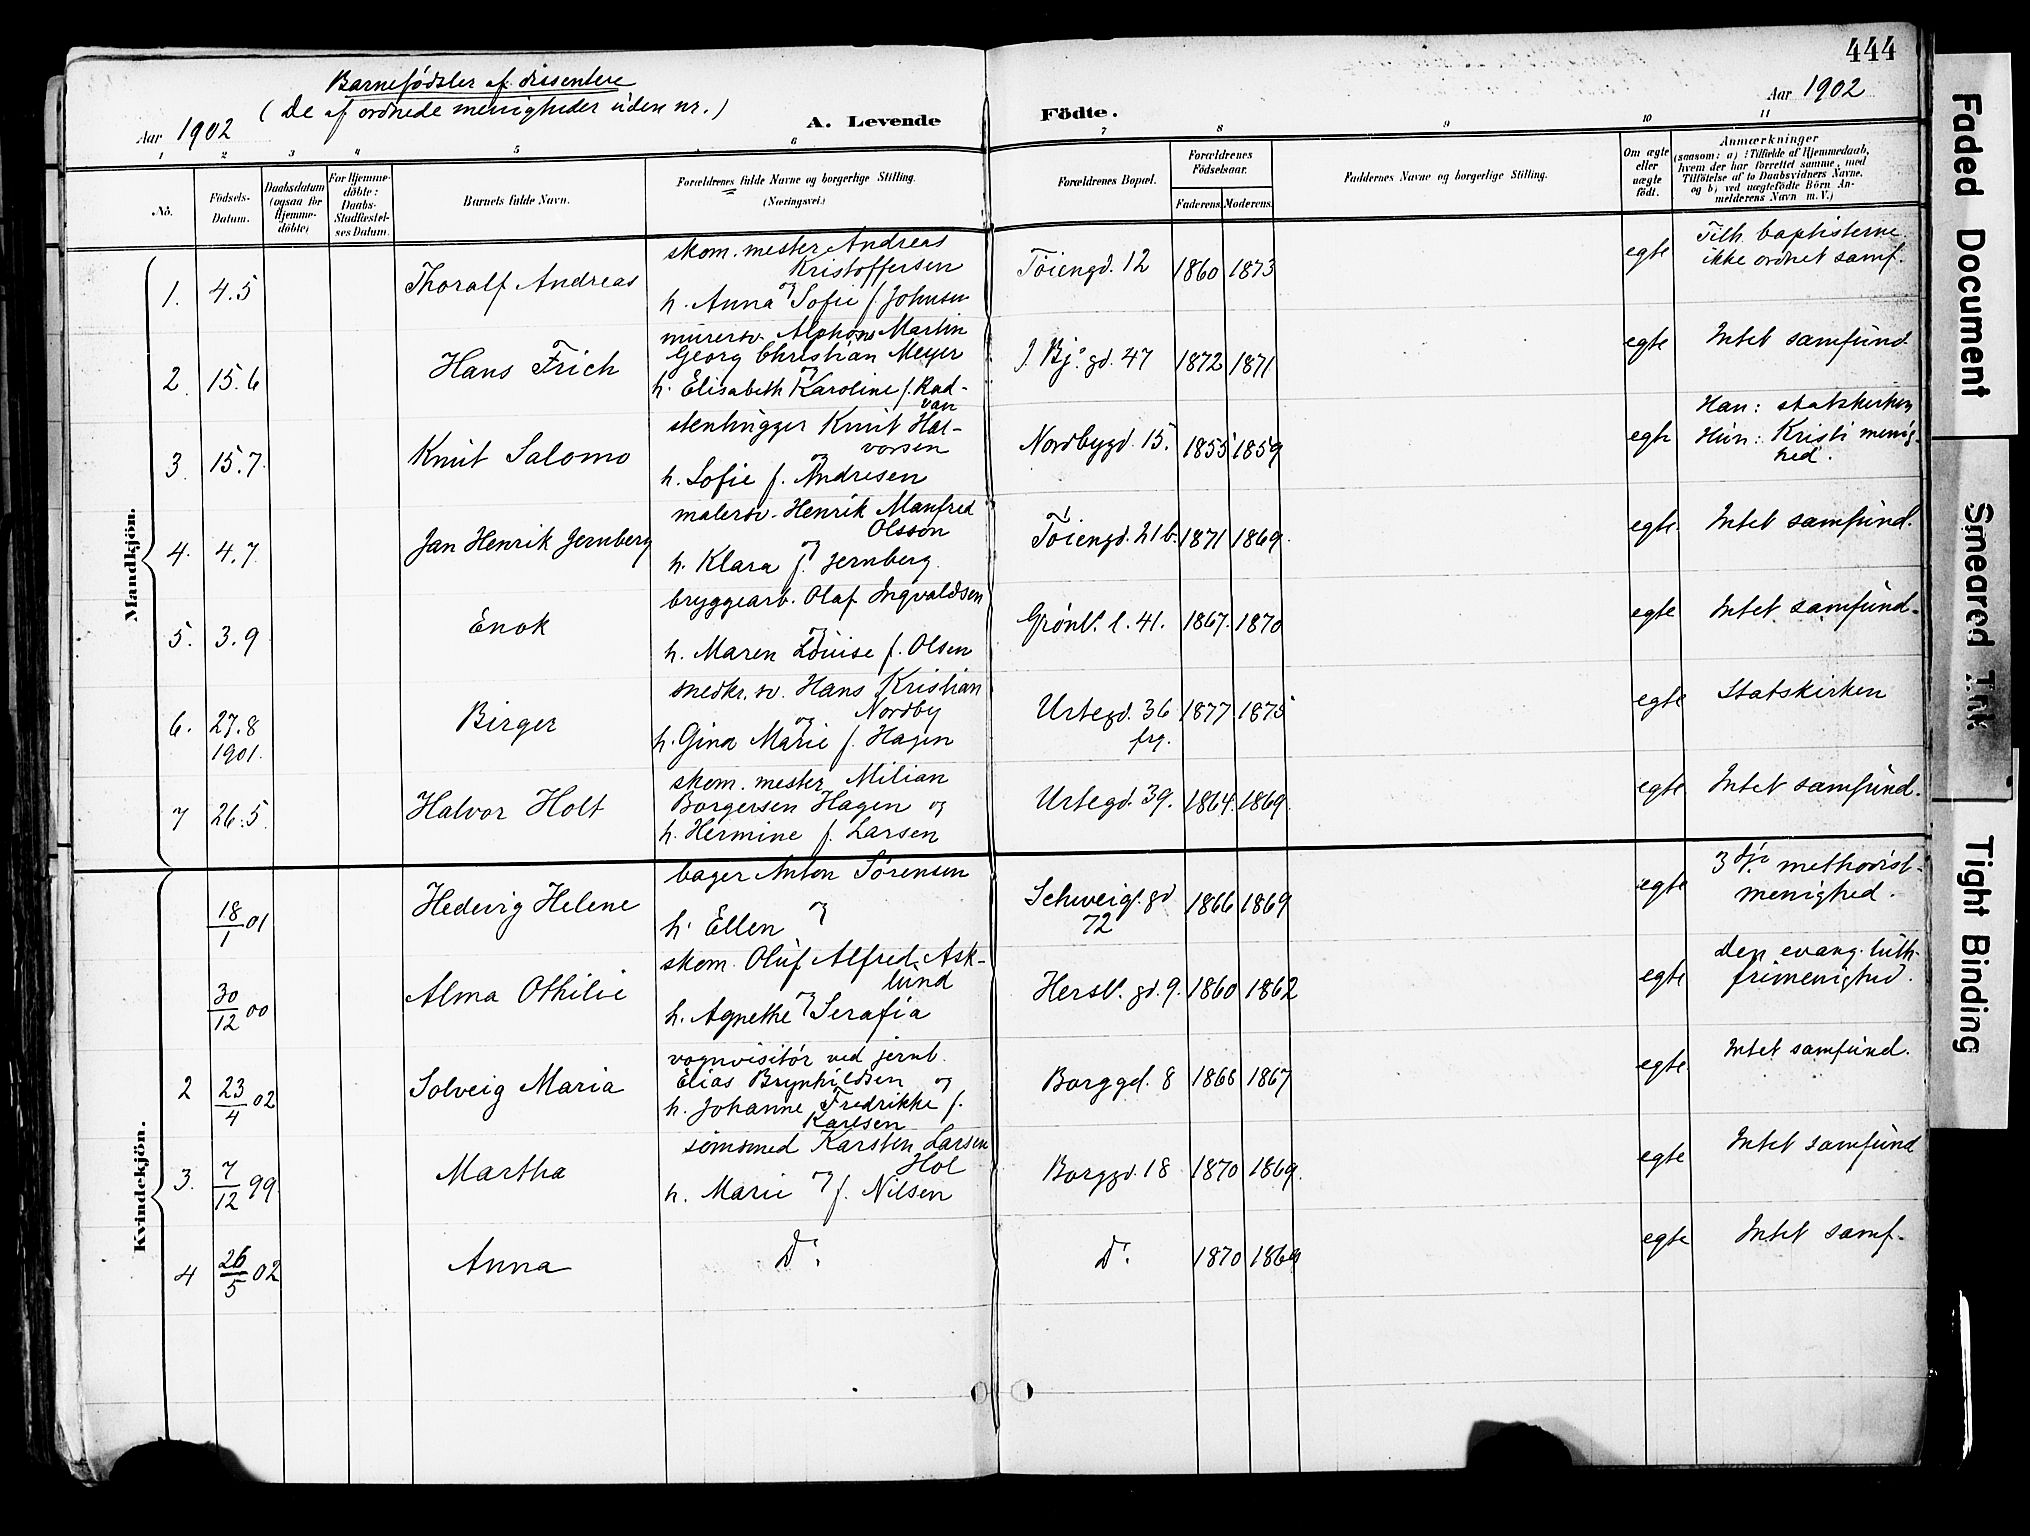 444
Barnefødsler af dissentere
(De af ordnede menigheder uden nr.)
Aar 1902
A. Levende Födte.
Aar 1902
1 2 3 4 5 6 7 8 9 10 11
No.
Födsels-
Datum.
Daabsdatum
(ogsaa for
Hjemme-
döbte)
For Hjemme-
döbte:
Daabs-
Stadfæstel-
ses Datum.
Barnets fulde Navn.
Forældrenes fulde Navne og borgerlige Stilling.
(Næringsvei.)
Forældrenes Bopæl.
Forældrenes
Födselsaar.
Faderens. Moderens.
Faddernes Navne og borgerlige Stilling.
Om ægte
eller
uægte
födt.
Anmærkninger
(saasom: a) i Tilfælde af Hjemmedaab,
hvem der har forrettet samme, med
Tilföielse af to Daabsvidners Navne,
og b) ved uægtefödte Börn An-
melderens Navn m. V.)
Mandkjön.
1. 4.5 Thoralf Andreas
skom. mester Andreas
Kristoffersen
og
h. Anna Sofie f. Johnsen
Tøiengd. 12 1860 1873 egte
Tilh. baptisterne
ikke ordnet samf.
2. 15.6 Hans Frich
murersv. Alphons Martin
Georg Christian Meyer
og
h. Elisabeth Karoline f. Rad-
van
J. Bj. gd. 47 1872 1871 egte Intet samfund
3. 15.7. Knut Salomo
stenhugger Knut Hal-
vorsen
og
h. Sofie f. Andresen
Nordbygd. 15. 1855 1859 egte
Han: statskirken
Hun: Kristi menig-
hed.
4. 4.7. Jan Henrik Jernberg
malersv. Henrik Manfred
Olsson
og
h. Klara f. Jernberg.
Tøiengd. 21b. 1871 1869. egte. Intet samfund.
5. 3.9 Enok
bryggearb. Olaf Ingvaldsen
og
h. Maren Louise f. Olsen
Grønl. l. 41. 1867. 1870 egte Intet samfund.
6. 27.8
1901. Birger
snedkr. sv. Hans Kristian
Nordby
og
h. Gina Marie f. Hagen
Urtegd. 36
frg. 1877 1875 egte Statskirken
7 26.5. Halvor Holt
skom. mester Milian
Borgersen Hagen og
h. Hermine f. Larsen
Urtegd. 39. 1864. 1869. egte Intet samfund.
Kvindekjön.
18/1 01 Hedevig Helene
bager Anton Sørensen
og
h. Ellen
Schweig. gd
72 1866 1869 egte
3dje methodist-
menighed.
30/12 00 Alma Othilie
skom. Oluf Alfred Ask-
lund
og
h. Agnethe Serafia
Hersl. gd. 9. 1860 1862 egte
Den evang. luth.
frimenighed.
2 23/4 02 Solveig Maria
vognvisitør ved jernb.
Elias Brynhildsen og
h. Johanne Fredrikke f.
Karlsen
Borggd. 8 1866 1867 egte. Intet samfund.
3. 7/12 99 Martha
sømsmed Karsten Larsen
Hol
og
h. Marie f. Nilsen
Borggd. 18 1870 1869. egte Intet samfund
4 26/5 02 Anna Do. Do. 1870 1869 egte Intet samf.
Faded Document
Smeared Ink
Tight Binding